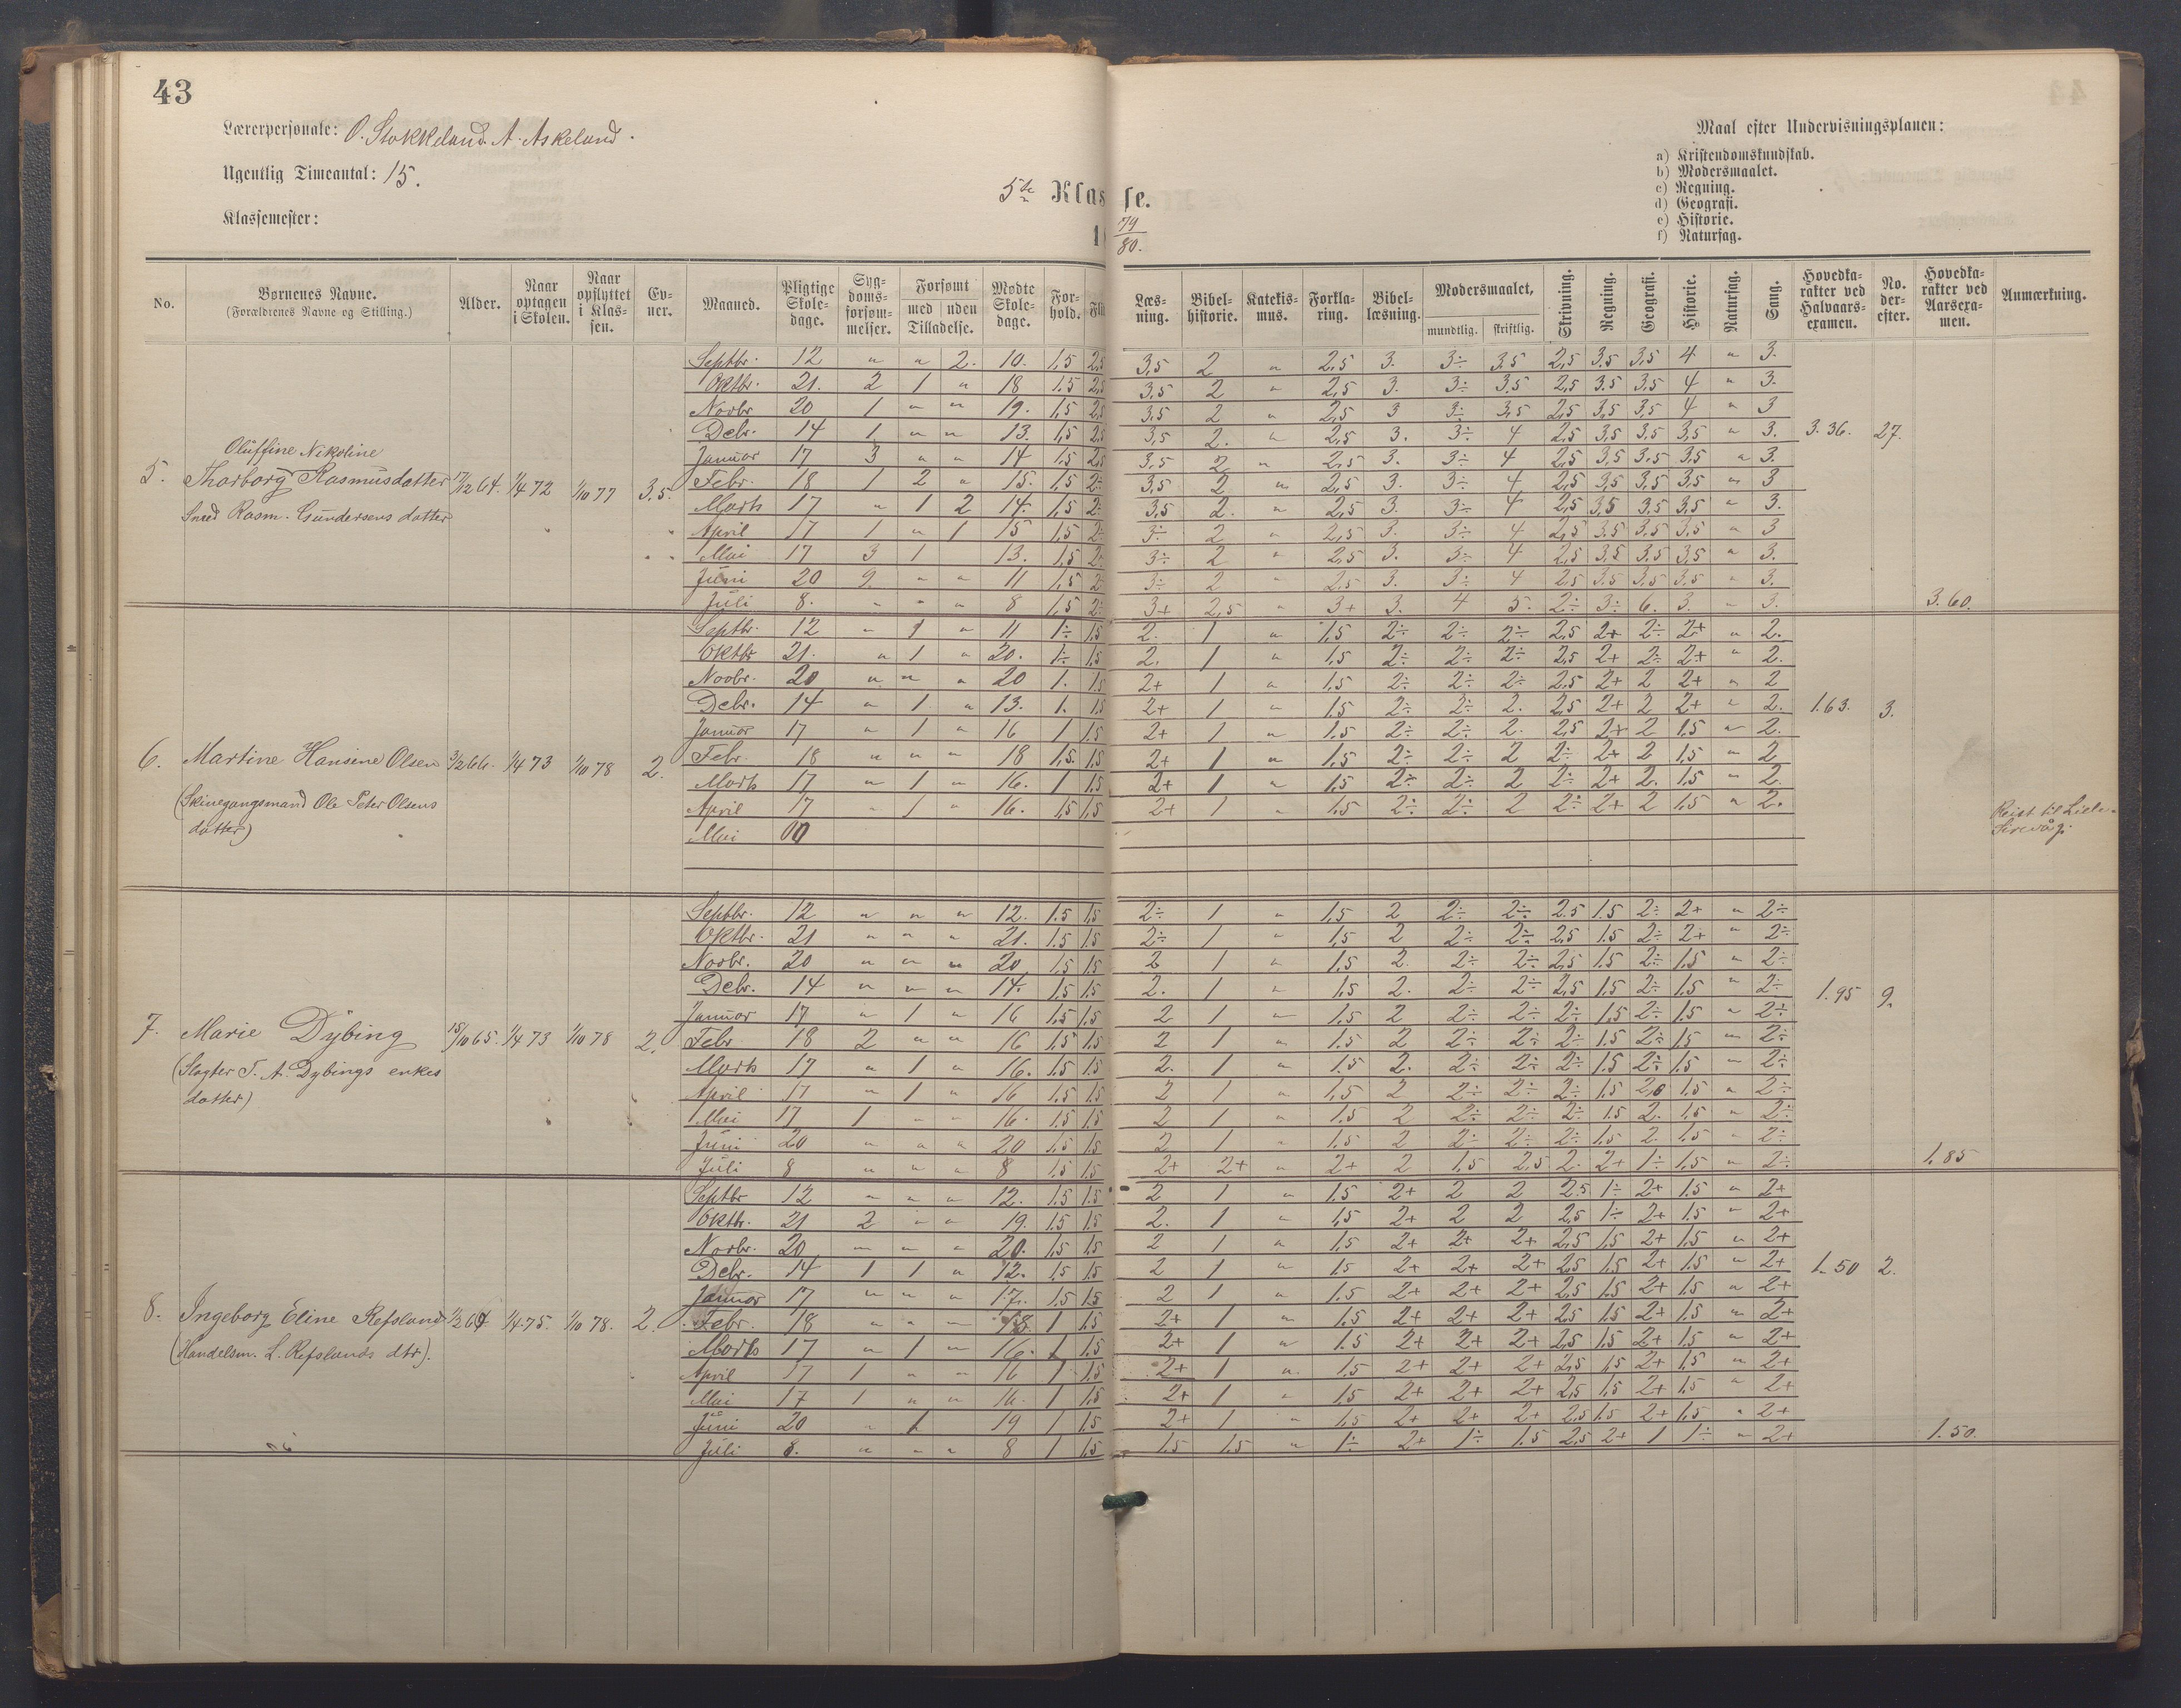 43
Lærerpersonale: O. Stokkeland. A. Askeland.
Ugentlig Timeantal: 15.
Klassemester:
5te Klasse.
79
80.
Maal efter Undervisningsplanen:
a) Kristendomskundskab.
b) Modersmaalet.
c) Regning.
d) Geografi.
e) Historie.
f) Naturfag.
No. | Børnenes Navne. (Forældrenes Navne og Stilling.) | Alder. | Naar optagen i Skolen. | Naar opflyttet i Klassen. | Evner. | Maaned. | Pligtige Skoledage. | Sygdomsforsømmelser. | Forsømt med uden Tilladelse. | Mødte Skoledage. | Forhold. | Læsning. | Bibelhistorie. | Katekismus. | Forklaring. | Bibellæsning. | Modersmaalet, mundtlig. skriftlig. | Skrivning. | Regning. | Geografi. | Historie. | Naturfag. | Sang. | Hovedkarakter ved Halvaarsexamen. | No. derefter. | Hovedkarakter ved Aarsexamen. | Anmærkning.
Septbr. 12 " " 2. 10. 1,5 2,5 3,5 2 " 2,5 3. 3÷ 3,5 2,5 3,5 3,5 4 " 3.
Oktbr. 21. 2 1 " 18 1.5 2,5 3,5 2 " 2,5 3. 3÷ 3,5 2,5 3.5 3,5 4 " 3.
Novbr 20 1 " " 19. 1,5 2,5 3,5 2 " 2,5 3 3÷ 3,5 2,5 3,5 3,5 4 " 3
Debr. 14 1 " " 13. 1,5 2,5 3,5 2. " 2,5 3. 3÷ 4 2,5 3,5 3,5 3,5 " 3. 3.36. 27.
Oluffine Nikoline
Januar 17 3 " " 14 1,5 2,5 3,5 2 " 2,5 3. 3÷ 4 2,5 3,5 3,5 3,5 " 3
5. Thorborg Rasmusdatter 17/12 64. 1/4 72 1/10 77 3.5.
Febr. 18 1 2 " 15. 1,5 2÷ 3,5 2 " 2,5 3. 3÷ 4 2,5 3,5 3,5 3,5 " 3
Smed Rasm. Gundersens datter
Marts 17 " 1 2 14. 1,5 2÷ 3,5 2. " 2,5 3. 3÷ 4 2,5 3,5 3,5 3,5 " 3.
April 17 1 " 1 15 1,5 2÷ 3÷ 2 " 2,5 3. 3÷ 4 2,5 3.5 3,5 3,5 " 3
Mai 17 3 1 13. 1,5 2÷ 3÷ 2 " 2,5 3. 3÷ 4 2,5 3,5 3,5 3,5 " 3.
Juni 20 9 " " 11 1,5 2÷ 3÷ 2 " 2,5 3. 3÷ 4 2,5 3.5 3,5 3,5 " 3.
Juli 8. " " " 8 1,5 2÷ 3+ 2,5 " 3+ 3. 4 5. 2÷ 3÷ 6. 3. " 3. 3.60.
Septbr. 12 " 1 " 11 1÷ 1,5 2. 1 " 1,5 2÷ 2÷ 2÷ 2,5 2+ 2÷ 2+ " 2.
Oktbr 21. " 1 " 20. 1÷ 1,5 2. 1 " 1,5 2÷ 2÷ 2÷ 2,5 2+ 2÷ 2+ " 2.
Novbr. 20 " " " 20 1. 1.5 2+ 1 " 1,5 2÷ 2÷ 2÷ 2,5 2+ 2 2+ " 2
Debr. 14 " 1 " 13. 1. 1,5 2+ 1 " 1,5 2÷ 2÷ 2. 2,5 2+ 2 2+ " 2. 1.63. 3.
Januar 17 " 1 " 16 1 1,5 2+ 1 " 1,5 2÷ 2÷ 2. 2,5 2+ 2 1,5 " 2.
6. Martine Hansine Olsen 3/2 66. 1/4 73 1/10 78 2.
Febr. 18 " " " 18 1,5. 1,5 2+ 1 " 1,5 2÷ 2÷ 2 2÷ 2+ 2 1,5 " 2
Marts 17 " 1 " 16. 1 1,5 2+ 1 " 1,5 2÷ 2÷ 2 2÷ 2+ 2. 1,5 " 2.
(Skinegangsmand Ole Peter Olsens
April 17 " 1 " 16. 1,5 1,5 2+ 1 " 1,5 2÷ 2÷ 2 2÷ 2+ 2 1,5 " 2.
datter)
Mai 00
Reist til Lille-
Sirevåg.
Septbr. 12 " " " 12. 1.5 1,5 2÷ 1 " 1,5 2 2÷ 2÷ 2.5 1.5 2÷ 2+ " 2÷
Oktbr. 21 " " " 21. 1.5 1.5 2÷ 1 " 1,5 2 2÷ 2÷ 2,5 1.5 2÷ 2+ " 2÷
Novbr. 20 " " " 20 1,5 1,5 2 1 " 1,5 2. 2÷ 2÷ 2,5 1.5 2÷ 1,5 " 2÷
Debr. 14 " " " 14. 1,5 1,5 2. 1 " 1,5 2. 2÷ 2÷ 2,5 1,5 2÷ 1,5 " 2÷ 1.95 9.
Januar 17 " 1 " 16 1,5 1,5 2 1 " 1,5 2 2÷ 2÷ 2÷ 1,5 2÷ 1,5 " 2÷
7. Marie Dybing 18/10 65. 1/4 73 1/10 78 2.
Febr 18 2 " " 16 1,5 1,5 2 1 " 1.5 2 2÷ 2÷ 2÷ 1.5 2÷ 1,5 " 2÷
(Slagter T. A. Dybings enkes
Marts 17 " 1 " 16. 1.5 1.5 2. 1 " 1,5 2. 2÷ 2÷ 2÷ 1.5 2÷ 1.5 " 2÷
datter)
April 17 " 1 " 16 1,5 1.5 2 1 " 1,5 2 2÷ 2÷ 2÷ 1.5 2,0 1.5 " 2÷
Mai 17 1 " " 16. 1.5 1.5 2 1 " 1.5 2 2÷ 2÷ 2÷ 1.5 2. 1.5 " 2÷
Juni 20 " " " 20 1,5 1.5 2 1 " 1,5 2 2÷ 2÷ 2÷ 1.5 2. 1.5 " 2÷
Juli 8 " " " 8 1,5 1.5 2+ 2+ " 2+ 2 1,5 2,5 2. 2+ 1÷ 1,5 " 2÷ 1.85
Septbr 12 " " " 12. 1.5 1.5 2 1 " 1.5 2+ 2 2 2.5 1÷ 2+ 1.5 " 2+
Oktbr. 21 2 " " 19. 1.5 1.5 2. 1 " 1,5 2+ 2 2 2,5 1÷ 2+ 1,5 " 2+
Novbr. 20 " " " 20. 1,5 1,5 2 1 " 1,5 2+ 2+ 2+ 2,5 1,5 2+ 1,5 " 2+
Debr. 14 1 1 " 12. 1,5 1.5 2 1 " 1.5 2+ 2+ 2+ 2,5 1.5 2+ 1,5 " 2+ 1.50 2.
Januar 17 " " " 17. 1.5 1.5 2 1 " 1,5 2+ 2+ 2+ 2,5 1,5 2+ 1,5 " 2+
8. Ingeborg Eline Refsland 1/4 75. 1/10 78. 2.
Febr. 18 " " " 18. 1 1.5 2+ 1 " 1,5 2+ 2+ 2+ 2,5 1,5 2+ 1,5 " 2+
(Handelsm. L. Refslands dtr).
Marts 17 " 1 " 16. 1 1,5 2+ 1 " 1.5 2+ 2+ 2+ 2,5 1,5 2+ 1,5 " 2+
April 17 1 " " 16 1 1,5 2+ 1 " 1,5 2+ 2+ 2+ 2,5 1,5 2+ 1,5 " 2+
Mai 17 1 " " 16. 1 1,5 2+ 1 " 1,5 2+ 2+ 2+ 2,5 1,5 2+ 1,5 " 2+
Juni 20 " 1 19 1 1.5 2+ 1 " 1,5 2+ 2+ 2+ 2,5 1.5 2+ 1,5 " 2+
Juli 8. " " " 8 1 1,5 1.5 1.5 " 1÷ 2+ 1÷ 1.5 2,5 2+ 1 1÷ " 2+ 1.50.